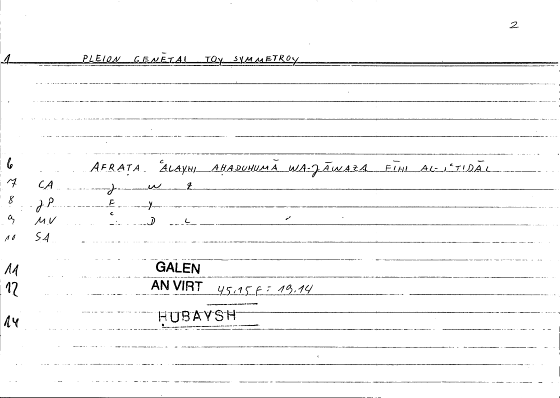 2
1 PLEION GENĒTAI TOY SYMMETROY
6 AFRAṬA ʿALAYHI AḤADUHUMĀ WA-ǦĀWAZA FĪHI AL-IʿTIDĀL
7 CA ǧ w z
8 JP F y
9 MV ʿ D L
10 SA
11 GALEN
12 AN VIRT 45.15 f : 19.14
14 HUBAYSH